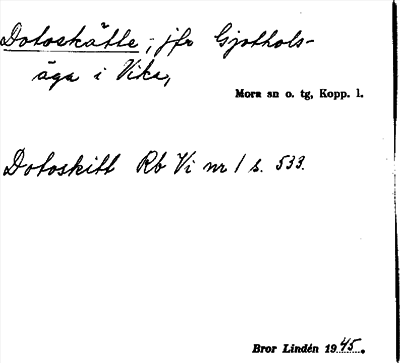 Dotoskätte, jfr Gjothols-
äga i Vika,
Mora sn o. tg, Kopp. l.
Dotoskitt Rb Vi nr 1 s. 533.
Bror Lindén 1945.